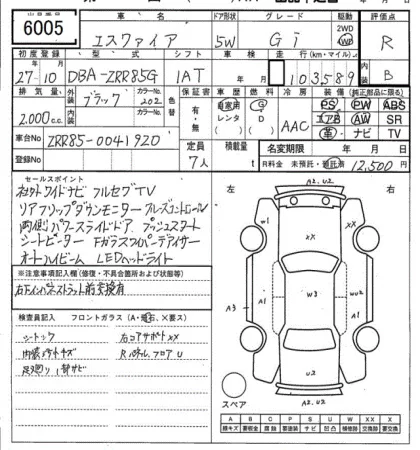 出品番号
6005
車名
エスクァイア
ドア形状
5W
グレード
Gi
駆動
2WD
4WD
評価点
R
初度登録
27・10
型式
DBA-ZRR85G
シフト
IAT
車検
年 月
走行(km・マイル)
103,589
内装
B
排気量
2,000 c.c.
外装
ブラック
カラーNo.
202
色替
保証書
有・無
車歴
自家用
レンタ
燃料
G
D
冷房
AAC
装備(純正部品に限る)
PS PW ABS
エアB AW SR
革 ナビ TV
定員
7人
積載量
t
車台No
ZRR85-0041920
登録No
名変期限 年 月 日
R料金 未預託・預託済 12,500円
セールスポイント
社外ワイドナビ フルセグTV
リアフリップダウンモニター クルーズコントロール
両側パワースライドドア プッシュスタート
シートヒーター Fガラスワイパーデアイサー
オートハイビーム LEDヘッドライト
※注意事項記入欄(修復・不具合箇所および状態等)
右Fインパネストラット前交換有
検査員記入 フロントガラス(A・飛石、×要ス)
シートスレ 右コアサポートXX
内装キズ Rバックパネル、フロアU
足廻り、下部サビ
左
右
A2.U2
W1
XX
A3
A1
W3
A1
U2
A2.U2
スペア
A B C P S U W X XX
線キズ 要板金 腐食 要塗装 サビ 凹凸 補修跡 要交換 交換跡